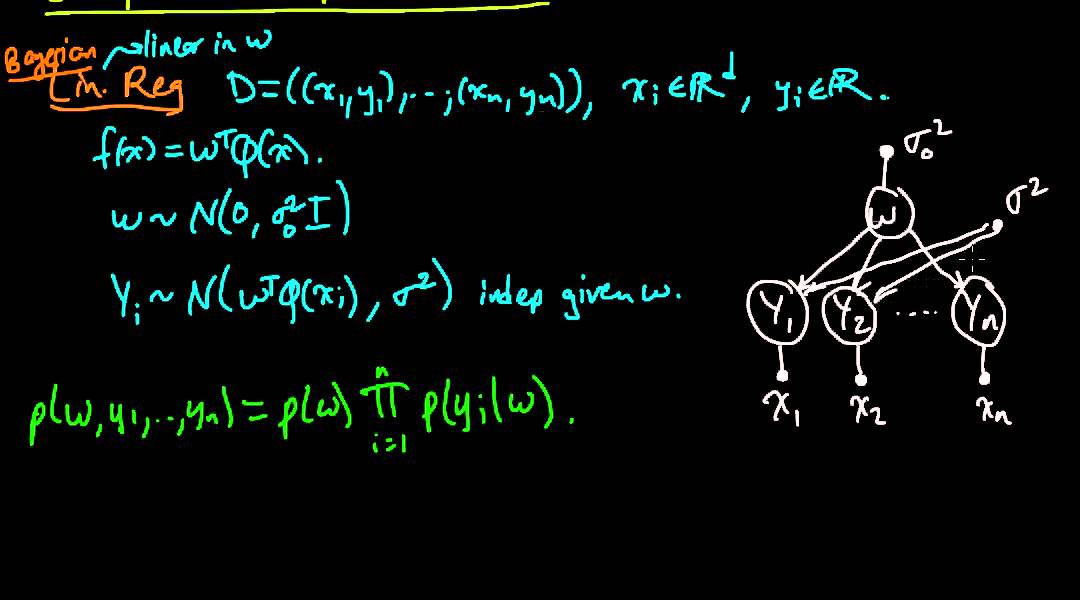 Bayesian → linear in w
Lin. Reg D = ((x₁,y₁),...,(xₙ,yₙ)), xᵢ ∈ ℝᵈ, yᵢ ∈ ℝ.
f(x) = wᵀφ(x).
w ~ N(0, σ₀²I)
Yᵢ ~ N(wᵀφ(xᵢ), σ²) indep given w.
p(w,y₁,..,yₙ) = p(w) ∏ᵢ₌₁ⁿ p(yᵢ|w).
σ₀²
σ²
w
Y₁ Y₂ .... Yₙ
x₁ x₂ xₙ